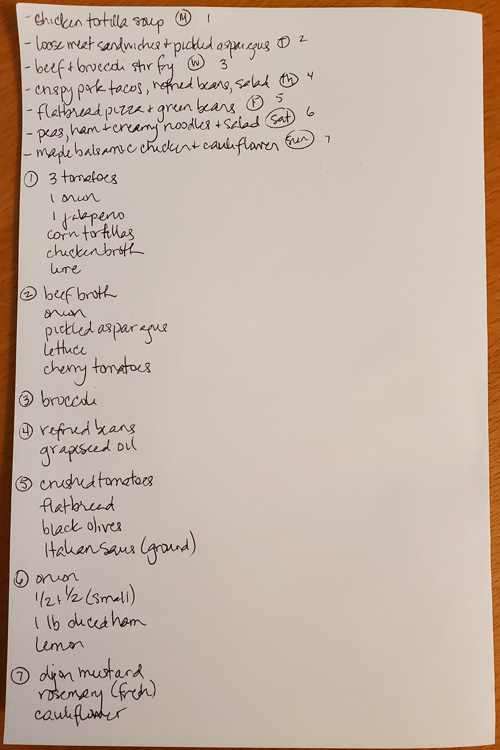 - chicken tortilla soup (M) 1
- loose meat sandwiches + pickled asparagus (T) 2
- beef + broccoli stir fry (W) 3
- crispy pork tacos, refried beans, salad (Th) 4
- flatbread pizza + green beans (F) 5
- peas, ham + creamy noodles + salad (Sat) 6
- maple balsamic chicken + cauliflower (Sun) 7
① 3 tomatoes
1 onion
1 jalapeno
corn tortillas
chicken broth
lime
② beef broth
onion
pickled asparagus
lettuce
cherry tomatoes
③ broccoli
④ refried beans
grapeseed oil
⑤ crushed tomatoes
flatbread
black olives
Italian saus (ground)
⑥ onion
1/2 + 1/2 (small)
1 lb diced ham
lemon
⑦ dijon mustard
rosemary (fresh)
cauliflower